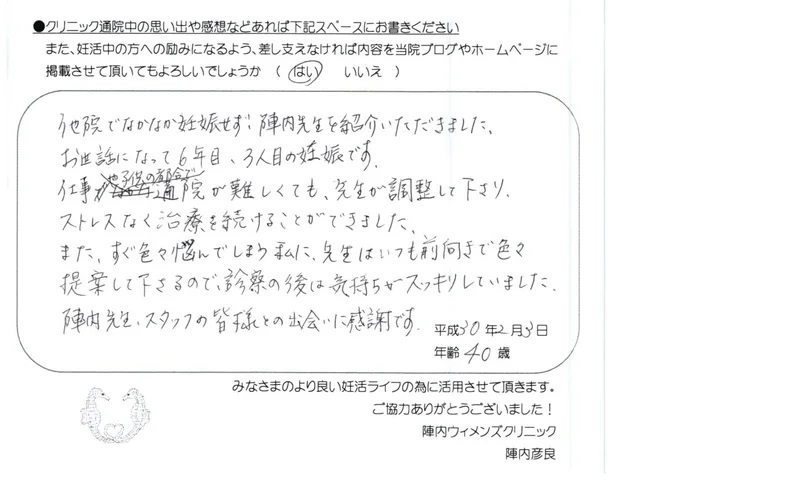 ●クリニック通院中の思い出や感想などあれば下記スペースにお書きください
また、妊活中の方への励みになるよう、差し支えなければ内容を当院ブログやホームページに
掲載させて頂いてもよろしいでしょうか （ はい ・ いいえ ）
他院でなかなか妊娠せず、陣内先生を紹介いただきました。
お世話になって6年目、3人目の妊娠です。
仕事や子供の都合で通院が難しくても、先生が調整して下さり、
ストレスなく治療を続けることができました。
また、すぐ色々悩んでしまう私に、先生はいつも前向きで色々
提案して下さるので、診察の後は気持ちがスッキリしていました。
陣内先生、スタッフの皆様との出会いに感謝です。
平成30年2月3日
年齢 40 歳
みなさまのより良い妊活ライフの為に活用させて頂きます。
ご協力ありがとうございました！
陣内ウィメンズクリニック
陣内彦良